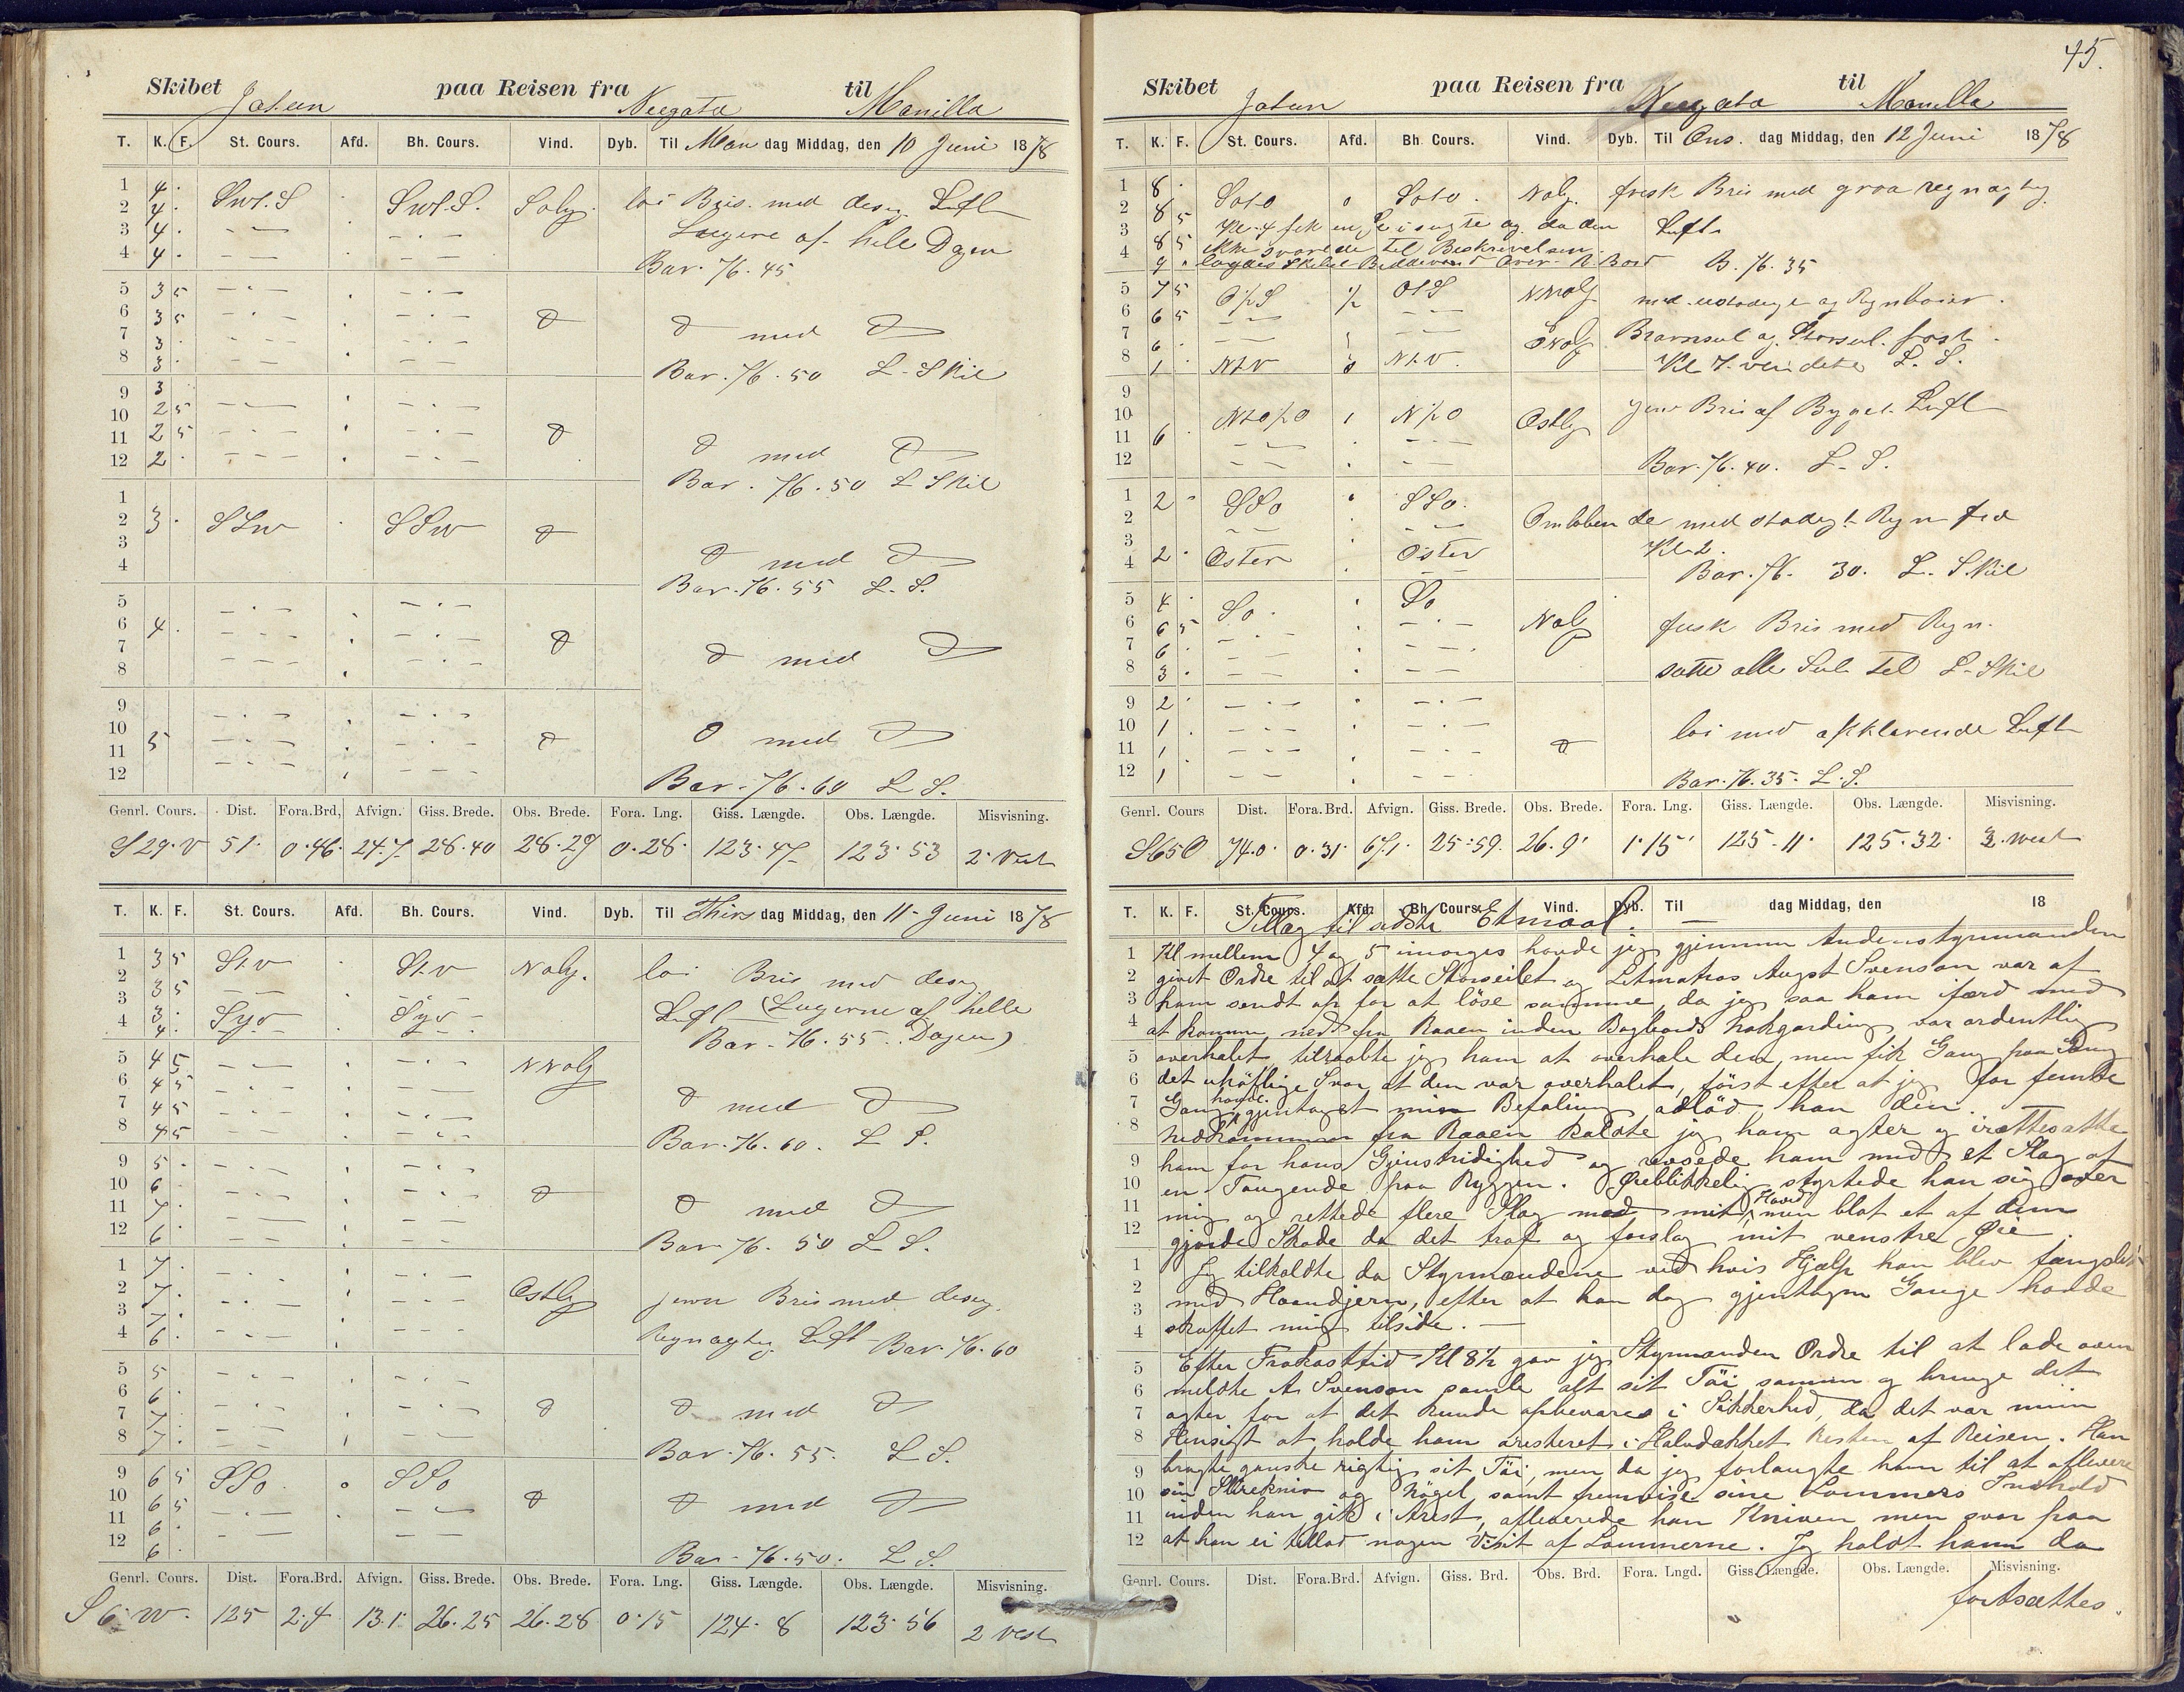 45.
Skibet Jotun paa Reisen fra Neegata til Manilla
T. K. F. St. Cours. Afd. Bh. Cours. Vind. Dyb. Til Man dag Middag, den 10 Juni 1878
1 4 · SWt.S · SWt.S. Soly. loi Bris. med desig Luft
2 4 · Lugerne af hele Dagen
3 4 ·
4 4 · Bar. 76.45
5 3 5
6 3 5 med
7 3 ·
8 3 · Bar. 76.50 L-Skil
9 3
10 2 5
11 2 5 med
12 2 · Bar. 76.50 L Skil
1
2 3 · SSW SSW
3 med
4 Bar. 76.55 L.S.
5
6 4 ·
7 med
8
9
10
11 5 med
12 Bar. 76.60 L S.
Genrl. Cours. Dist. Fora.Brd. Afvign. Giss. Brede. Obs. Brede. Fora. Lng. Giss. Længde. Obs. Længde. Misvisning.
S 29. V 51. 0.46. 24.7 28.40 28.29 0.28. 123.47 123.53 2. Vest
T. K. F. St. Cours. Afd. Bh. Cours. Vind. Dyb. Til Thirs dag Middag, den 11 Juni 1878
1 3 5 St.v St.v Noly. loi Bris med desig
2 3 5 Luft (Lugerne af helle
3 3 · Syv Syv
4 4 · Bar. 76.55. Dagen)
5 4 5 NNoly
6 4 5
7 4 5 med
8 4 5 Bar. 76.60. L S.
9 5 ·
10 6 ·
11 7 · med
12 6 Bar 76.50 L S.
1 7 ·
2 7 · Ostly jevn Bris med desig.
3 7 ·
4 6 · Regnagtig Luft Bar. 76.60
5 5
6 6 ·
7 7 · med
8 7 · Bar. 76.55. L S.
9 6 5 SSo SSo
10 6 5
11 6 · med
12 6 Bar. 76.50. L S.
Genrl. Cours. Dist. Fora.Brd. Afvign. Giss. Brede. Obs. Brede. Fora. Lng. Giss. Længde. Obs. Længde. Misvisning.
S 6. W. 125 2.4 13.1 26.25 26.28 0.15 124.8 123.56 2 Vest
Skibet Jotun paa Reisen fra Neegata til Manilla
T. K. F. St. Cours. Afd. Bh. Cours. Vind. Dyb. Til Ons. dag Middag, den 12 Juni 1878
1 8 · Soto Soto. Noly. frisk Bris med graa regnagtig
2 8 5 Kl. 4 fik en i sigte og da den Luft
3 8 5 ikke svarede til Beskrivelsen
4 9 · lagdes Skibet over B. Bord B. 76.35
5 7 5 O½S ½ OtS NNoly med stadige Regnboier.
6 6 5
7 6 · ONoly Bramseil og Storseil fast
8 1 NtV NtV. Kl 7 vendete L. S.
9 jevn Bris af Byget Luft
10 Nto½O N½O Ostly
11 6 ·
12 Bar. 76.40. L.S.
1 2 · SSo SSo.
2 Omlobende med stadigt Regn fra
3 Kl. 2.
4 2 · Oster Oster Bar. 76. 30. L. Skil
5 4 · So. So
6 6 5 Noly frisk Bris med Regn.
7 6 ·
8 3 · satte alle Seil til L-Skil
9 2 ·
10 1 · loi med opklarende Luft
11 1
12 1 Bar. 76.35. L.S.
Genrl. Cours Dist. Fora.Brd. Afvign. Giss. Brede. Obs. Brede. Fora. Lng. Giss. Længde. Obs. Længde. Misvisning.
S65O 74.0. 0.31. 67.1. 25.59. 26.9' 1.15' 125.11. 125.32. 3. West
T. K. F. St. Cours. Afd. Bh. Cours. Vind. Dyb. Til dag Middag, den 18
Tillæg til sidste Etmaal.
1 Kl mellem 4 og 5 imorges havde jeg gjennem Andenstyrmanden
2 givet Ordre til at sætte Storseilet og Letmatros Augst Svenson var af
3 ham sendt op for at löse samme, da jeg saa ham ifærd med
4 at komme ned fra Raaen inden Bagbords bukgarding var ordentlig
5 overhalet, tilraabte jeg ham at overhale den, men fik Gang paa Gang
6 det uhöflige Svar at den var overhalet, först efter at jeg for femte
7 Gang havde gjentaget min Befaling adlöd han den.
8 Nedkommen fra Raaen kaldte jeg ham agter og irættesatte
9 ham for hans Gjenstridighed og revsede ham med et Slag af
10 en Tougende paa Ryggen. Øieblikkelig styrtede han sig over
11 mig og rettede flere Slag mod mit Hoved, men blot et af dem
12 gjorde Skade da det traf og forslog mit venstre Øie
1 Jeg tilkaldte da Styrmændene ved hvis Hjælp han blev fængslet
2 med Haandjern, efter at han dog gjentagne Gange havde
3
4 skuffet mig tilside. —
5 Efter Frokosttid Kl 8½ gav jeg Styrmanden Ordre til at lade oven
6 meldte A. Svenson samle alt sit Töi sammen og bringe det
7 agter for at det kunde opbevares i Sikkerhed, da det var min
8 Hensigt at holde ham aresteret i Halvdækket Resten af Reisen. Han
9 bragte ganske rigtig sit Töi, men da jeg forlangte ham til at aflevere
10 sin Skrekniv og Nögel samt fremvise sine Lommers Indhold
11 inden han gik i Arest, afleverede han Kniven men svor paa
12 at han ei tillod nogen Visit af Lommerne. Jeg holdt ham da
Genrl. Cours. Dist. Fora.Brd. Afvign. Giss. Brd. Obs. Brd. Fora. Lngd. Giss. Længde. Obs. Længde. Misvisning.
fortsættes.